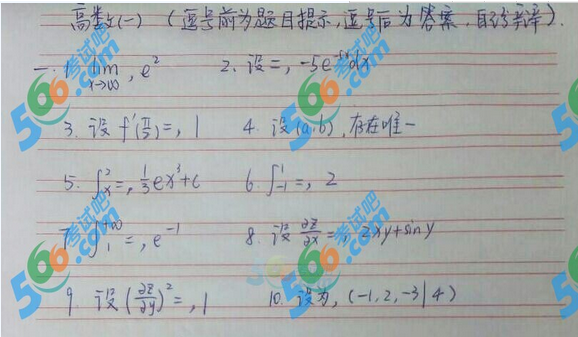 高数(一) (逗号前为题目提示,逗号后为答案,自己斟辨).
一.1. lim x→∞, e² 2. 设=, -5e^-5x dx
3. 设 f'(π/3)=, 1 4. 设(a,b), 存在唯一
5. ∫x²=, 1/3 e^x³+c 6. ∫-1^1=, 2
7. ∫1^+∞=, e^-1 8. 设 ∂z/∂x=, 2xy+siny
9. 设(∂z/∂y)²=, 1 10. 设为, (-1,2,-3|4)
566考试吧
566考试吧
566考试吧
566考试吧
566考试吧
566考试吧